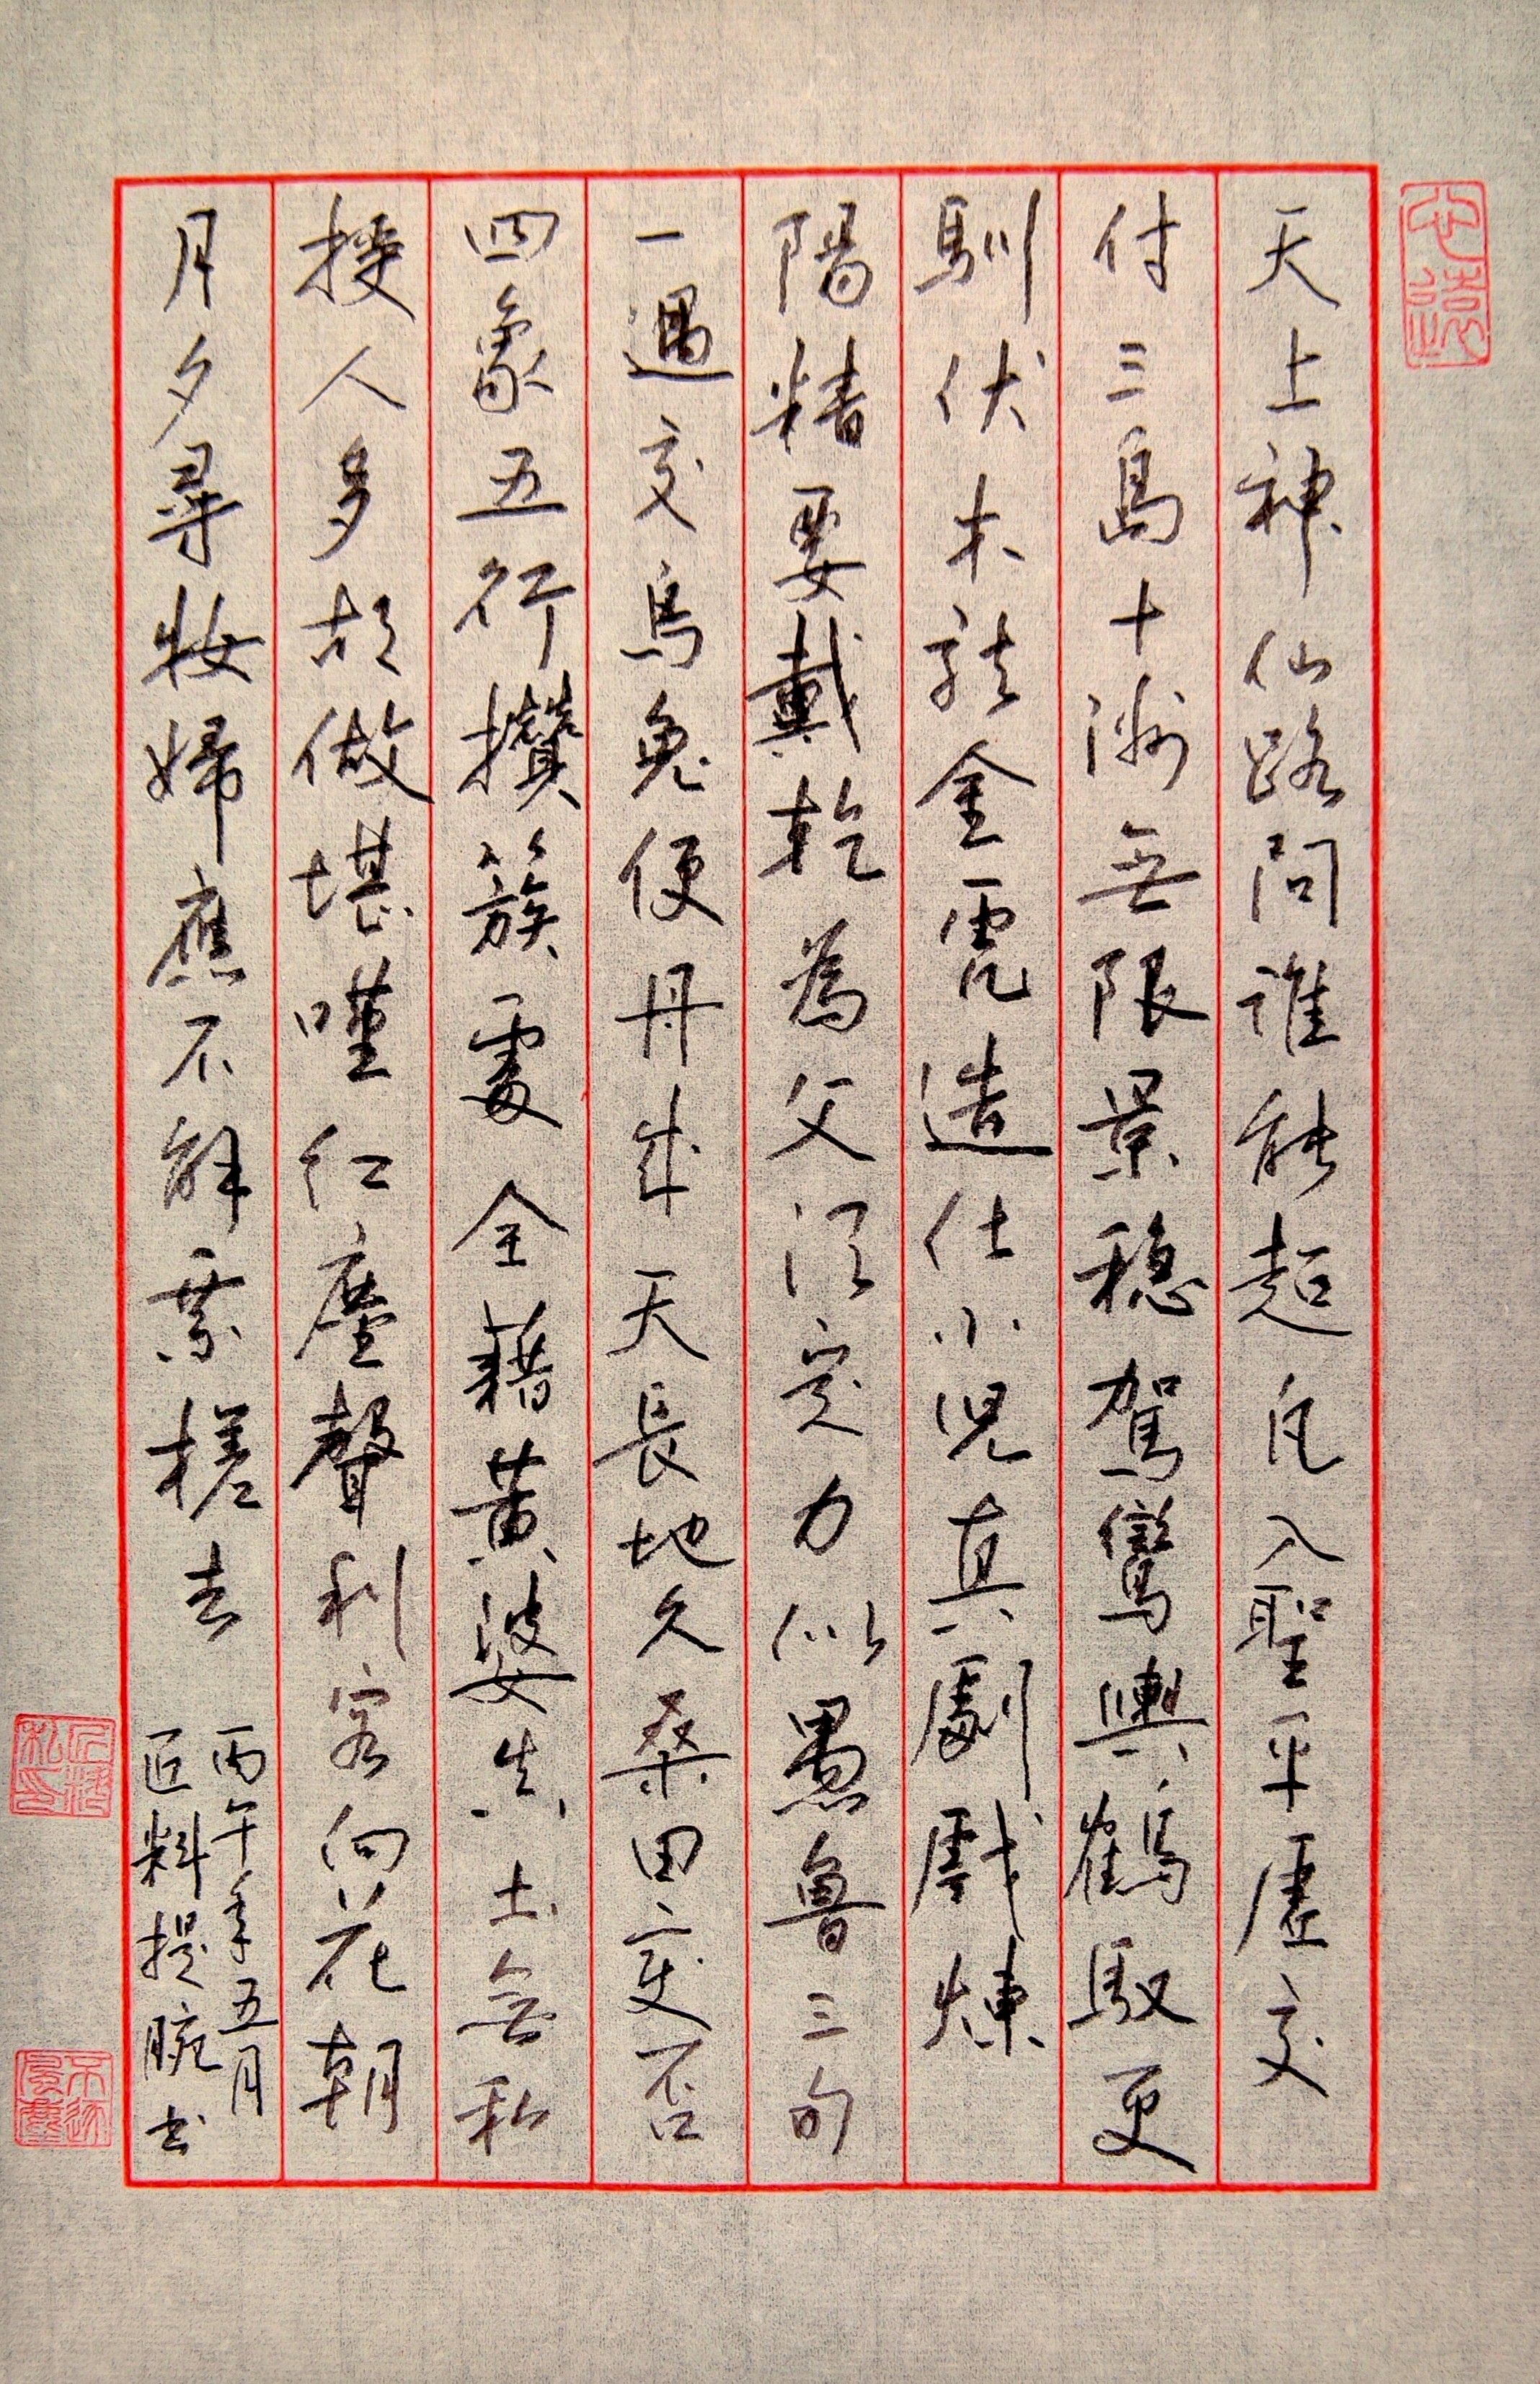 天上神仙路問誰能超凡入聖平虛交
付三島十洲無限景穩駕鸞輿鶴馭更
馴伏木龍金虎造化小兒真劇戲煉
陽精要戴乾為父須定力似愚魯三句
一遇交烏兔便丹成天長地久桑田變否
四象五行攢簇處全藉黃婆真土無私
授人多胡做堪嘆紅塵聲利客向花朝
月夕尋妝婦應不解乘槎去
丙午年五月
匠料提腕书